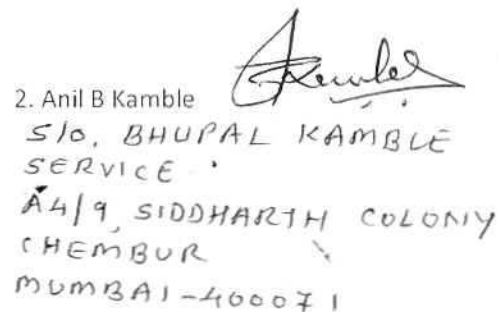 Kamble
2. Anil B Kamble
S/O, BHUPAL KAMBLE
SERVICE
A4/9, SIDDHARTH COLONY
CHEMBUR
MUMBAI-400071